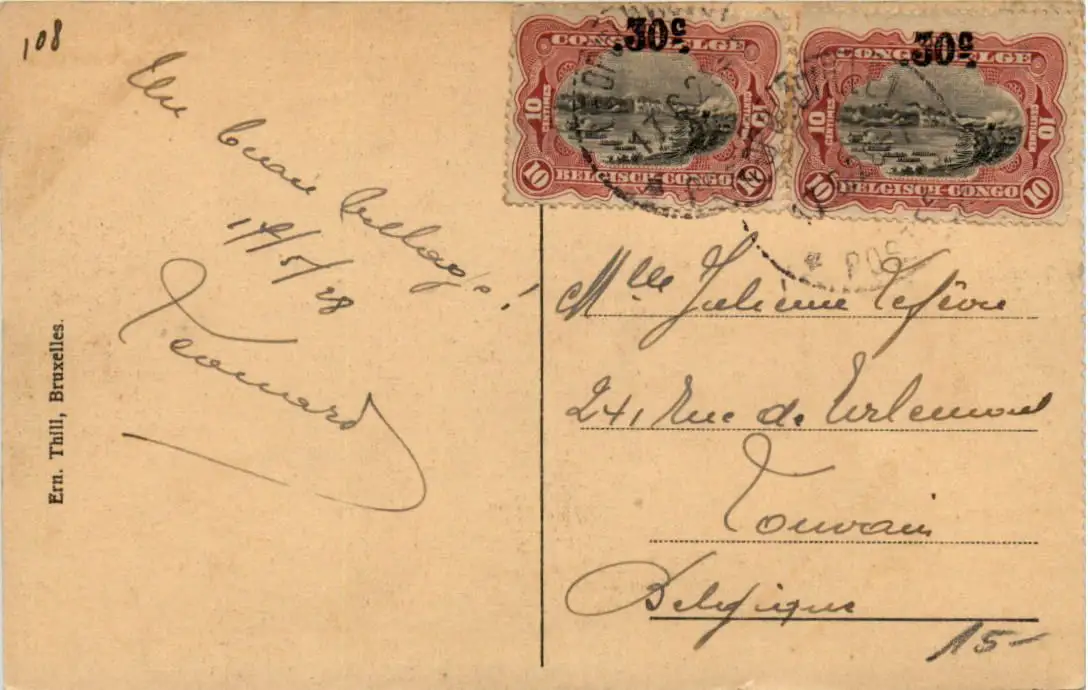 108
Un beau village!
17/5/28
Léonard
Ern. Thill, Bruxelles.
.30c
CONGO BELGE
10 CENTIMES
10 CENTIMES
10
BELGISCH-CONGO
10
.30c
CONGO BELGE
10 CENTIMES
10 CENTIMES
10
BELGISCH-CONGO
10
* POS
Mlle Julienne Lefèvre
241, Rue de Tirlemont
Louvain
Belgique
15-